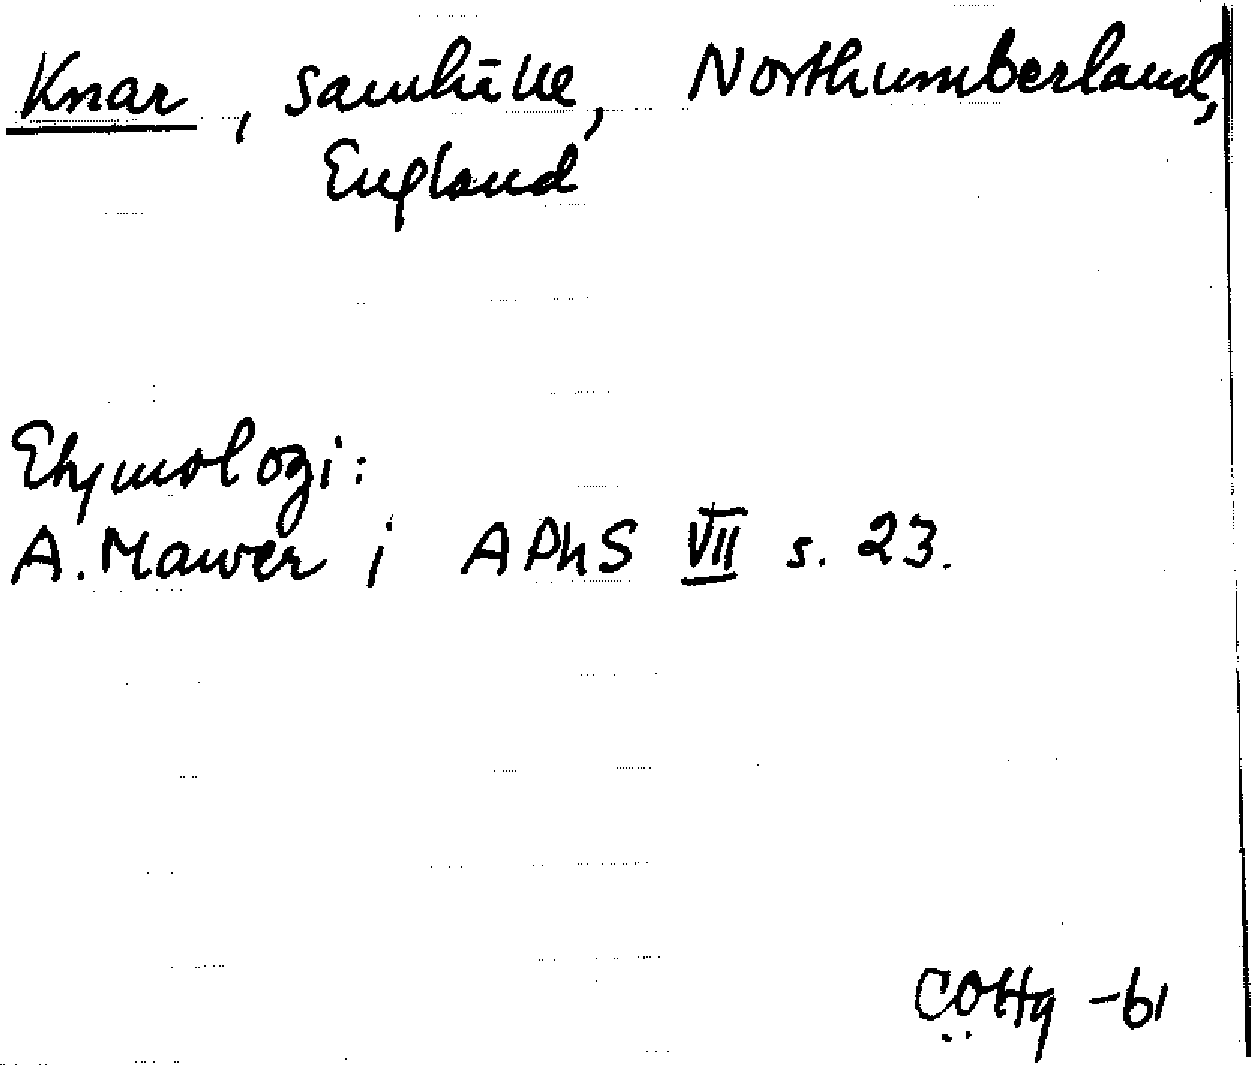 Knar, samhälle, Northumberland,
England
Etymologi:
A. Mawer i APhS VII s. 23.
COHg -61